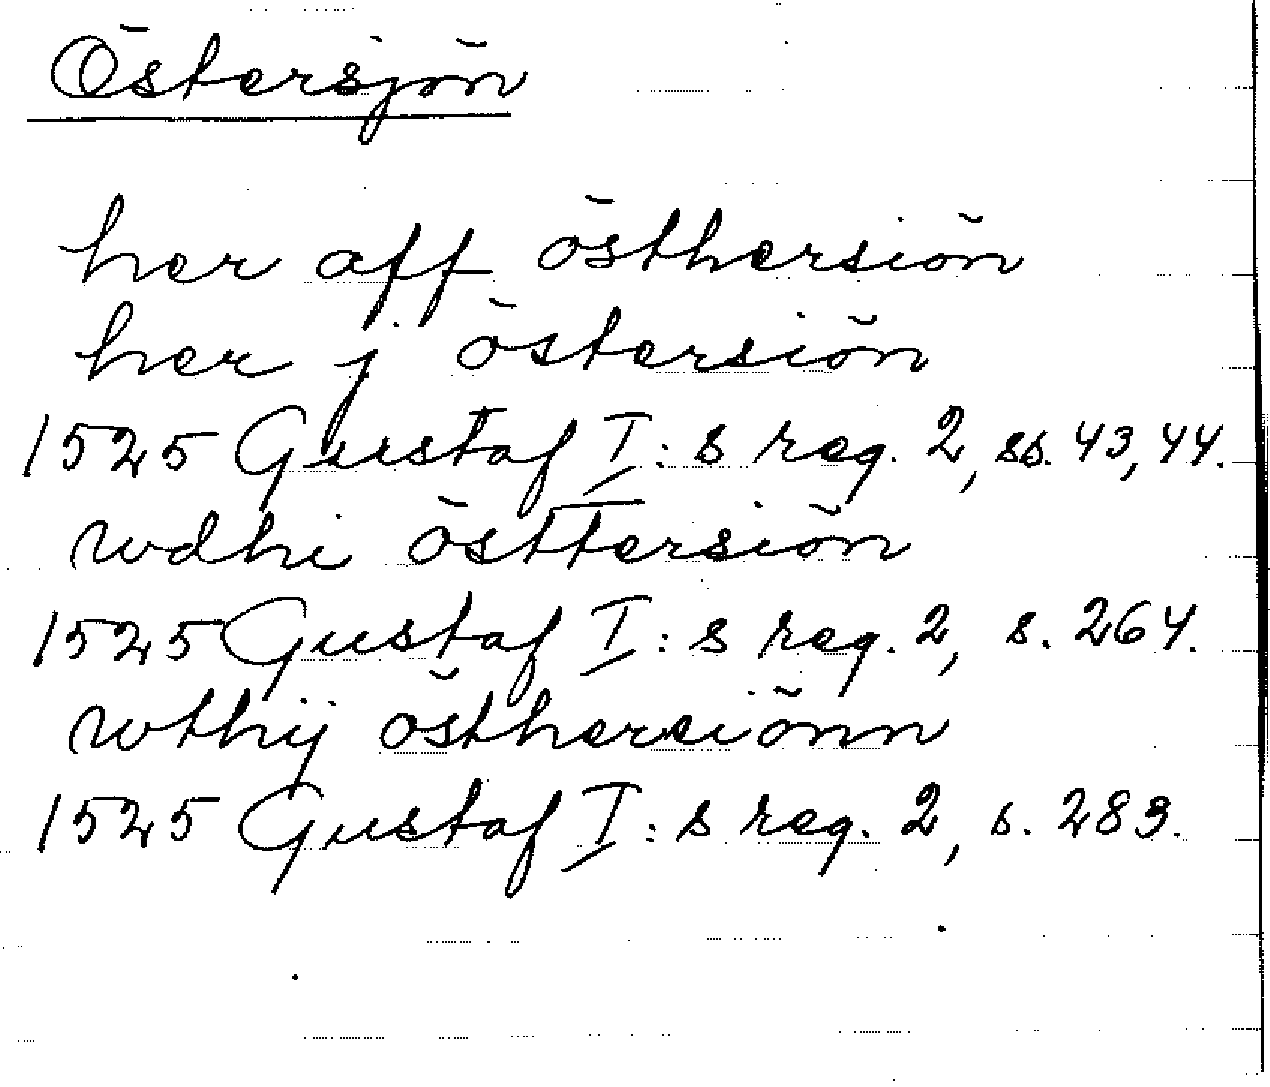 Östersjön
her aff östhersiön
her j östersiön
1525 Gustaf I:s reg. 2, ss. 43, 44.
wdhi östtersiön
1525 Gustaf I:s reg. 2, s. 264.
wthij östhersiönn
1525 Gustaf I:s reg. 2, s. 283.